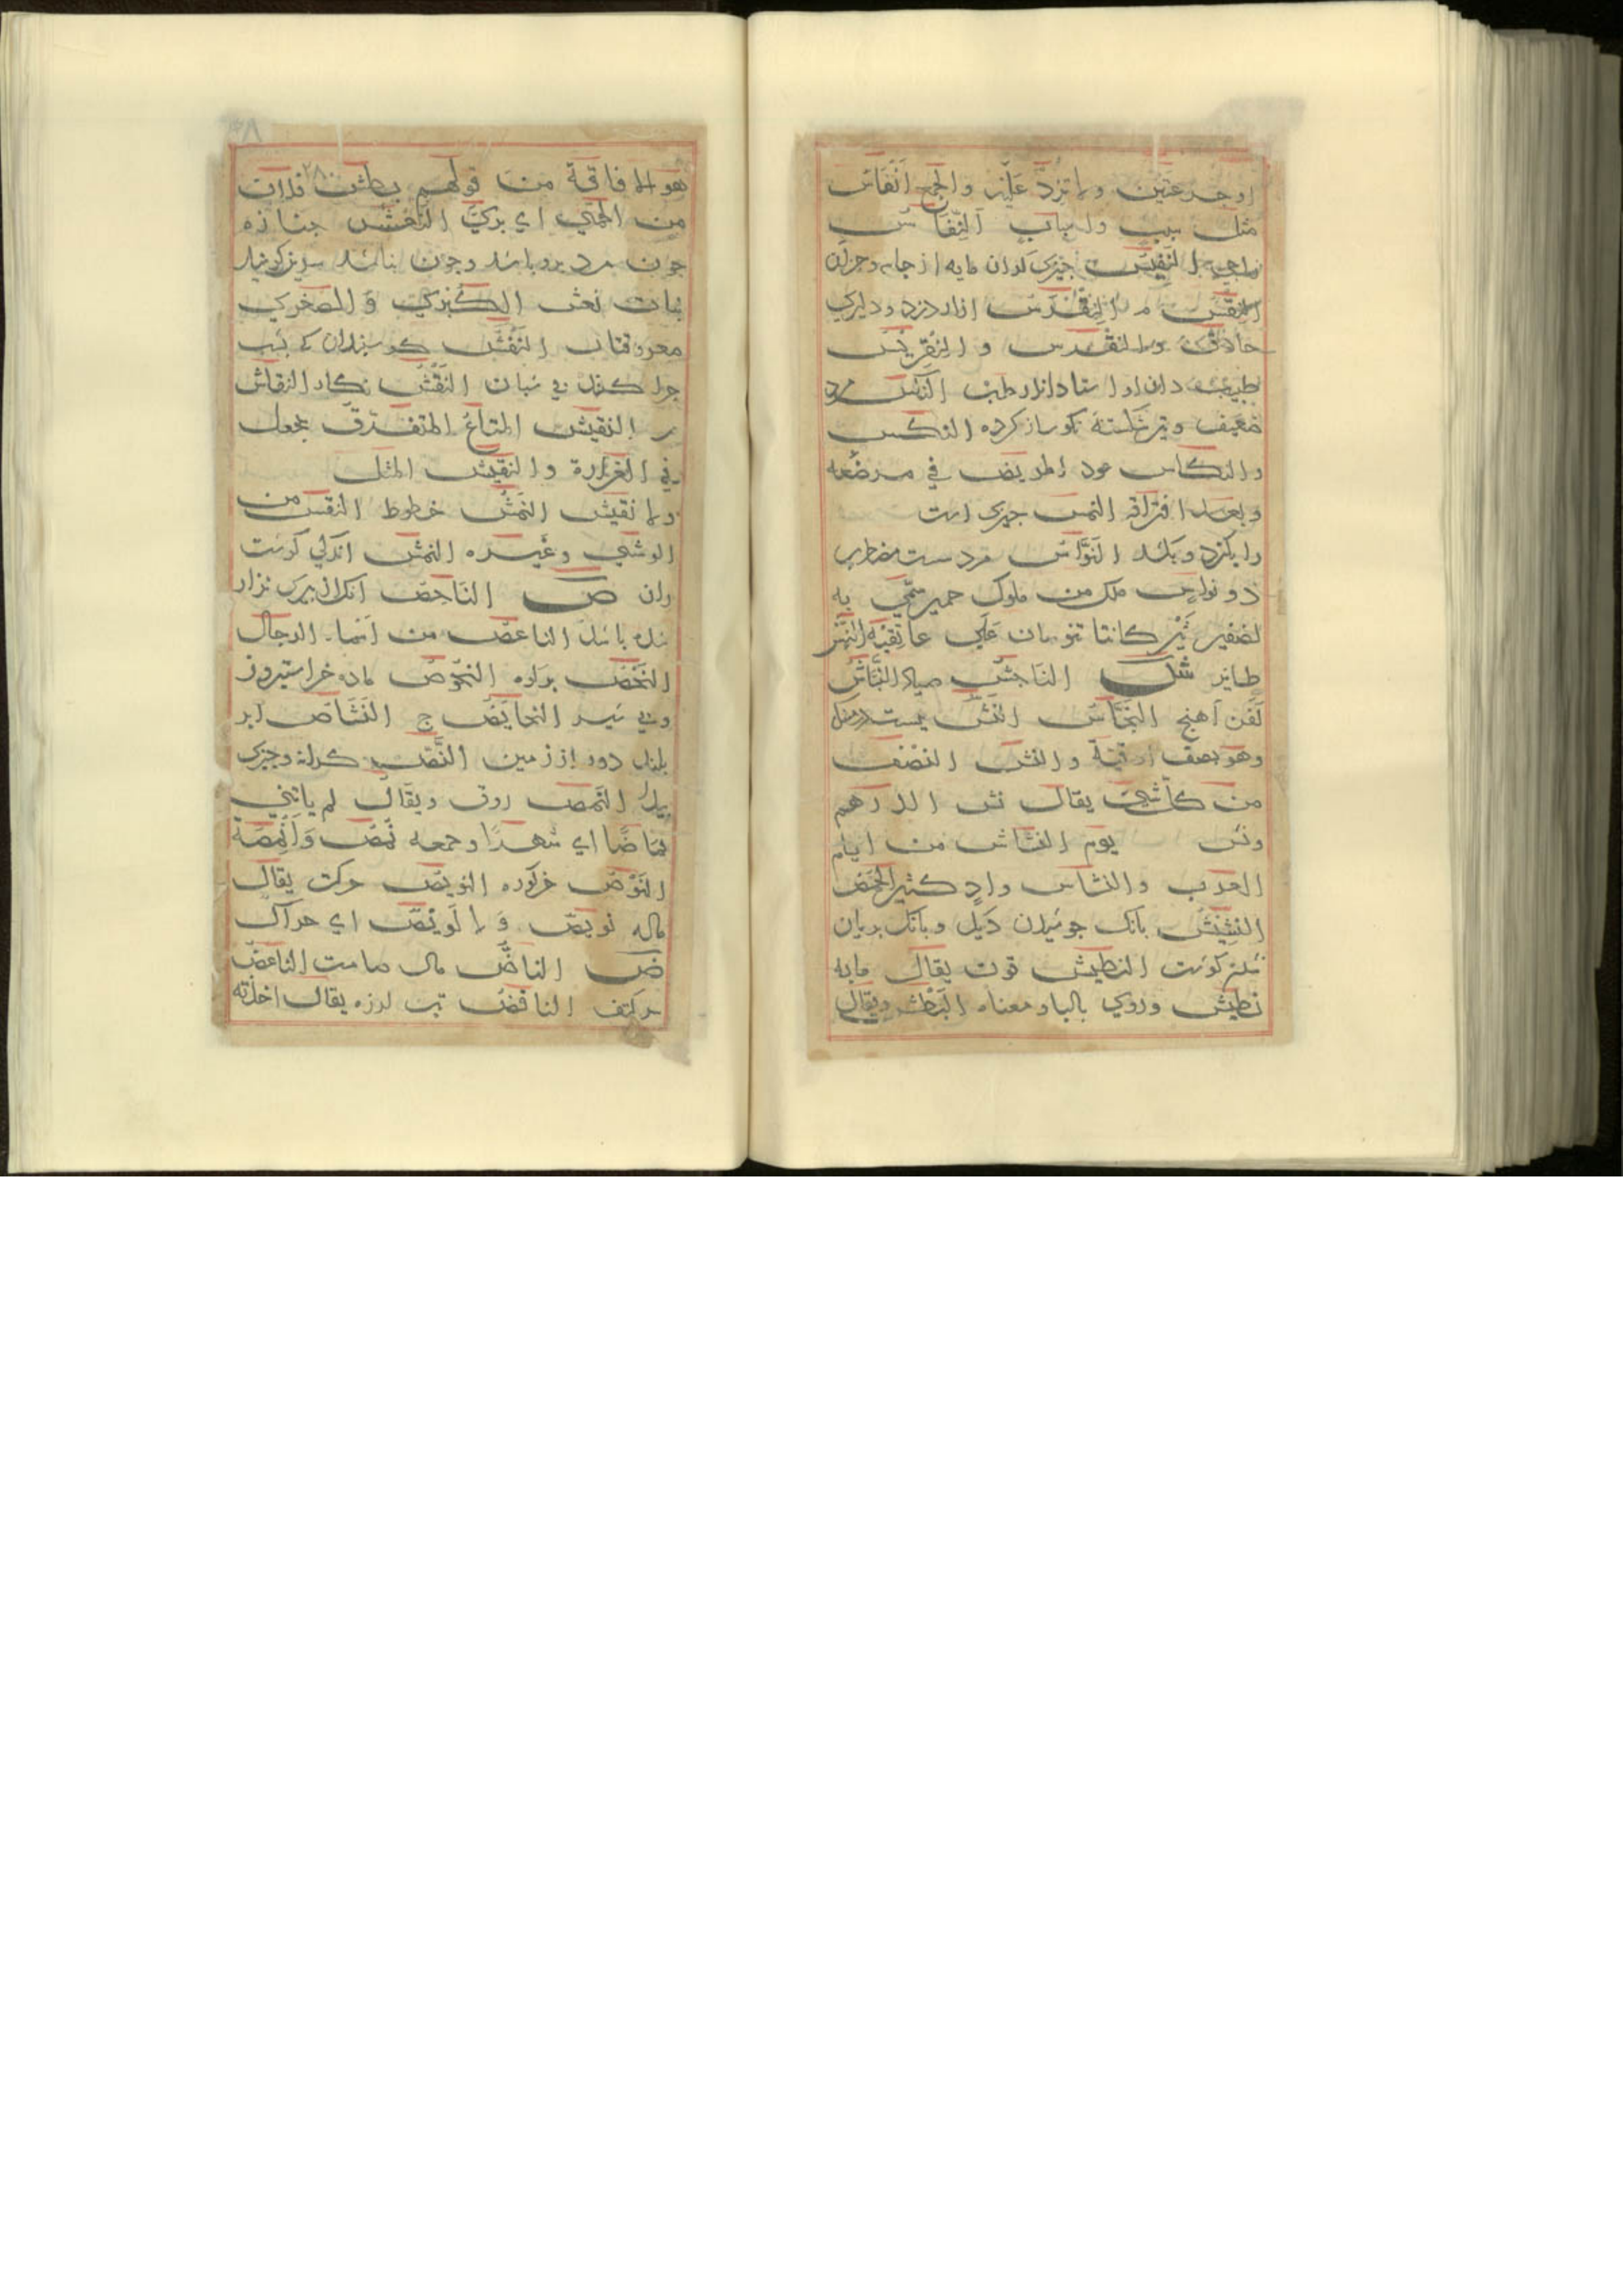 او جرعتين ولا تزد عليه والجمع انفاس
مثل سبب واسباب النِّفَاس
النفيس چيزى گران مايه از جامه وجزان
النقس
حاذق والنقرس والنقريس
طبيب دانا واستاد اندر طب النكس مرد
ضعيف وتير شكسته نكو ساز كرده النكس
والنكاس عود المريض في مرضه
وبعد افتراقه النمس چيزى است
را بگزد وبكشد النَّوَّاس مرد سست مضطرب
ذو نواس ملك من ملوك حمير سمّي به
لضفيرتين كانتا تنوسان علي عاتقيه
طاير ش الناجش صياد النبّاش
كفن آهنج النجاش النش بيست درمنك
وهو نصف اوقية والنش النصف
من كل شيئ يقال نش الدرهم
ونش يوم النشاش من ايام
العرب والنشاش وادٍ كثير الحمض
النشيش بانك جوشيدن ديك وبانك بريان
شدن كوشت النطيش قوت يقال ما به
نطيش وروي بالباء ومعناه البَطْش ويقال
هو الافاقة من قولهم بطش فلان
من الحمّي اي بريَ النعش جنازه
چون مرد برو باشد وچون نباشد سرير كويند
بنات نعش الكبري و الصغري
معروفتان النفش كوسبندان كه بشب
چرا كنند بي شبان النقش نكار النقاش
النقيش المتاع المتفرق يجعل
في الغرارة والنقيش المثل
ولا نقيش النمش خطوط النقش من
الوشي وغيره النمش اندكي كوشت
ران ص الناحص آنك از پيرى نزار
شده باشد الناعص من اسماء الرجال
النحص النحوص ماده خر استيرون
وبي شير النحايص ج النشاص ابر
بلند دور از زمين النص كرانه وچيزى
پيدا النمص رون ويقال لم ياتني
نماصًا اي شهرًا وجمعه نمص وانمصة
النوص خركوره النويص حركت يقال
ماله نويص و لا لويص اي حراك
ض الناضّ مال صامت الناغض
سر كتف النافض تب لرزه يقال اخذته